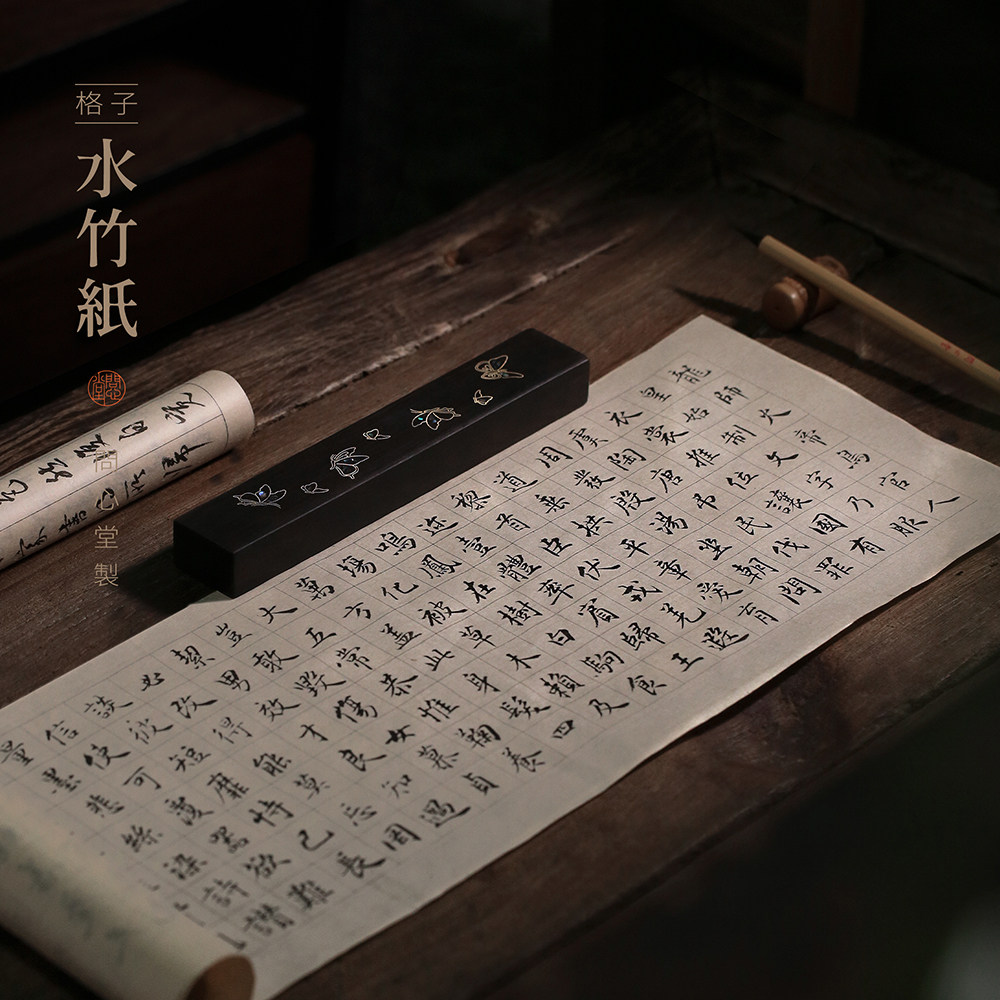 格子
水竹紙
心堂製
龍師火帝鳥官人
皇始制文字乃服
衣裳推位讓國有
虞陶唐弔民伐罪
周發殷湯坐朝問
道垂拱平章愛育
黎首臣伏戎羌遐
邇壹體率賓歸王
鳴鳳在樹白駒食
場化被草木賴及
萬方蓋此身髮四
大五常恭惟鞠養
豈敢毀傷女慕貞
絜男效才良知過
必改得能莫忘罔
談彼短靡恃己長
信使可覆器欲難
量墨悲絲染詩讚